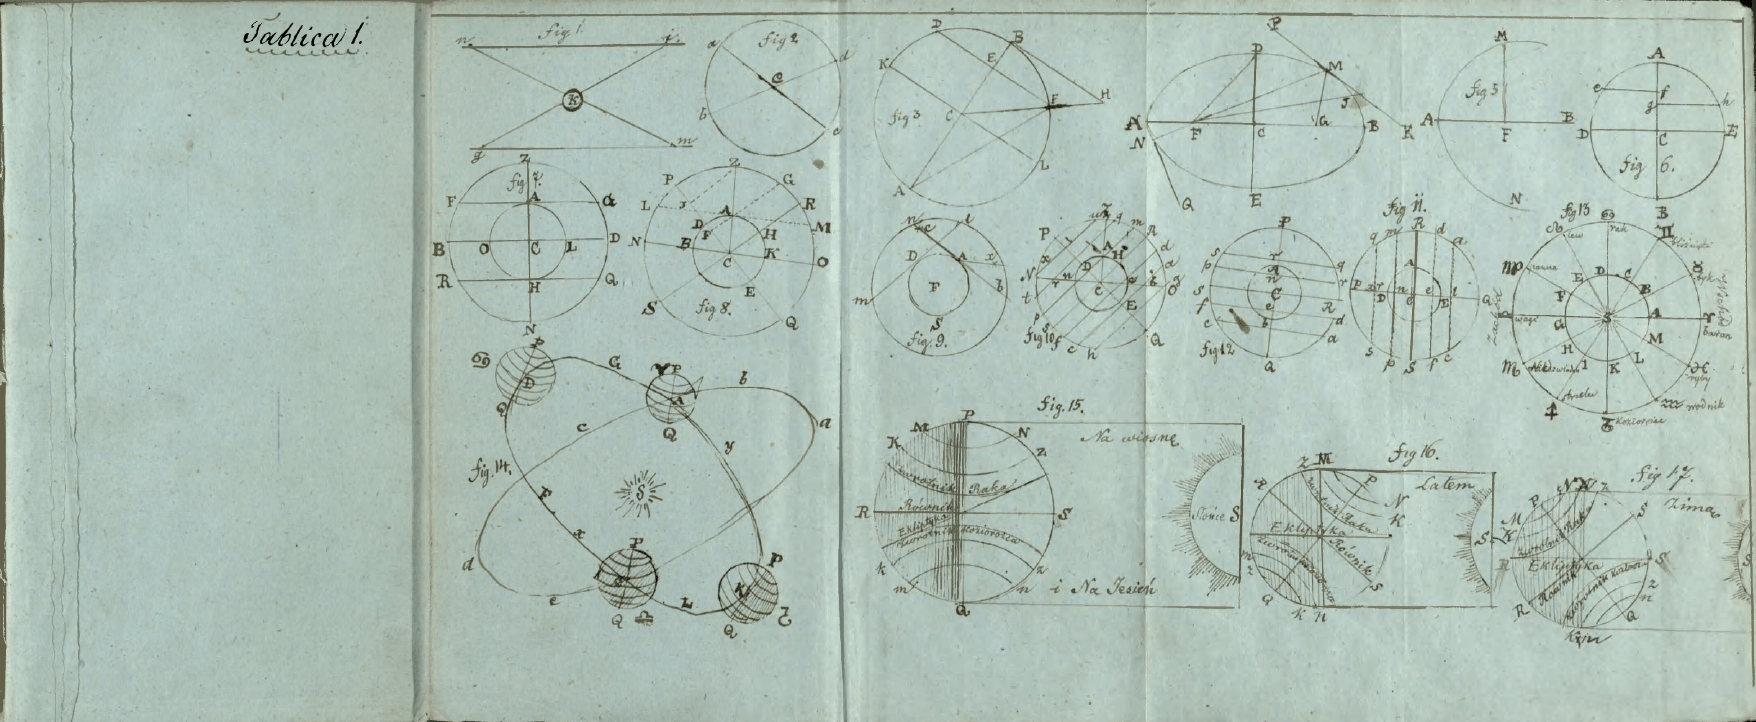 Tablica 1.
fig 1.
n.
K
g
m
fig 2
a
d
C
b
c
D
B
K
E
F
H
C
fig 3
L
A
P
D
M
J
A
F
C
G
B
K
N
E
Q
M
fig 5
A
F
B
N
A
e
f
g
h
D
C
E
fig 6.
B
Z
fig 7.
F
A
G
B
O
C
L
D
R
H
Q
N
Z
P
G
L
J
A
R
D
F
H
M
N
B
K
C
O
E
S
fig 8.
Q
n
c
D
A
x
F
b
m
S
fig. 9.
P
A
H
D
N
C
E
fig 10
c
h
Q
P
s
q
p
r
C
f
R
d
a
fig 12
Q
fig 11.
R
q
m
d
a
A
P
D
C
E
S
p
f
c
fig 13
♋
lew
rak
♊
♉
♍
panna
E
D
C
F
B
G
S
A
♈
baran
waga
H
M
♏
I
K
L
♓
ryby
strzelec
wodnik
Koziorożec
♋
P
D
G
♈
P
A
b
a
c
Q
y
fig. 14.
F
S
x
d
P
P
e
L
K
Q
♎
Q
fig. 15.
P
M
N
Na wiosnę
K
Z
zwrotnik Raka
R
Równik
S
Słońce S
Ekliptyka
zwrotnik Koziorożca
k
z
m
n
i Na Jesień
Q
fig 16.
Z
M
Latem
R
P
N
K
zwrotnik Raka
Ekliptyka
Równik
S
Q
k
n
Fig 17.
N
Z
Zima
P
S
M
K
zwrotnik Raka
R
Ekliptyka
S
Równik
zwrotnik Kozioro
R
n
Q